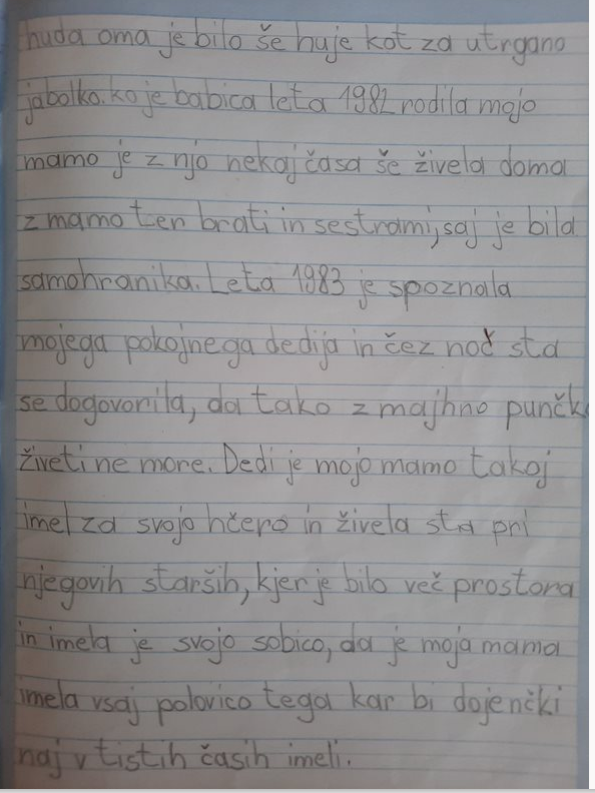 huda oma je bilo še huje kot za utrgano
jabolko. ko je babica leta 1982 rodila mojo
mamo je z njo nekaj časa še živela doma
z mamo ter brati in sestrami, saj je bila
samohranika. Leta 1983 je spoznala
mojega pokojnega dedija in čez noč sta
se dogovorila, da tako z majhno punčko
živeti ne more. Dedi je mojo mamo takoj
imel za svojo hčero in živela sta pri
njegovih starših, kjer je bilo več prostora
in imela je svojo sobico, da je moja mama
imela vsaj polovico tega kar bi dojenčki
naj v tistih časih imeli.